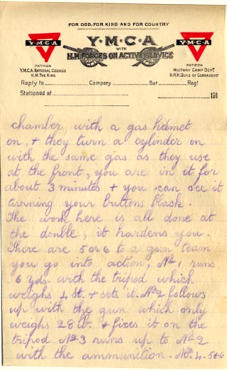 FOR GOD, FOR KING AND FOR COUNTRY
Y.M.C.A
WITH
H.M. FORCES ON ACTIVE SERVICE
YMCA
YMCA
PATRON
Y.M.C.A. NATIONAL COUNCIL
H.M. THE KING
PATRON
MILITARY CAMP DEPT
H.R.H. DUKE OF CONNAUGHT
Reply to Company Bat Regt
Stationed at 191
chamber, with a gas helmet
on, + they turn a cylinder on
with the same gas as they use
at the front, you are in it for
about 3 minutes + you can see it
turning your buttons black.
The work here is all done at
the double, it hardens you.
There are 5 or 6 to a gun team
you go into action, No 1 runs
6 yds. with the tripod which
weighs 4 st. + sets it. No 2 follows
up with the gun which only
weighs 28 lb. + fixes it on the
tripod No 3 runs up to No 2
with the ammunition. No. 4. 5+6